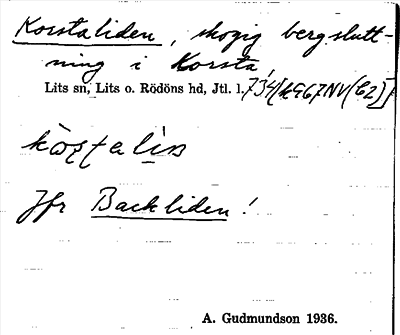 Korstaliden, skogig bergslutt-
ning i Korsta,
Lits sn, Lits o. Rödöns hd, Jtl. l. 734[K967NV(C2)]
Jfr Backliden!
A. Gudmundson 1936.